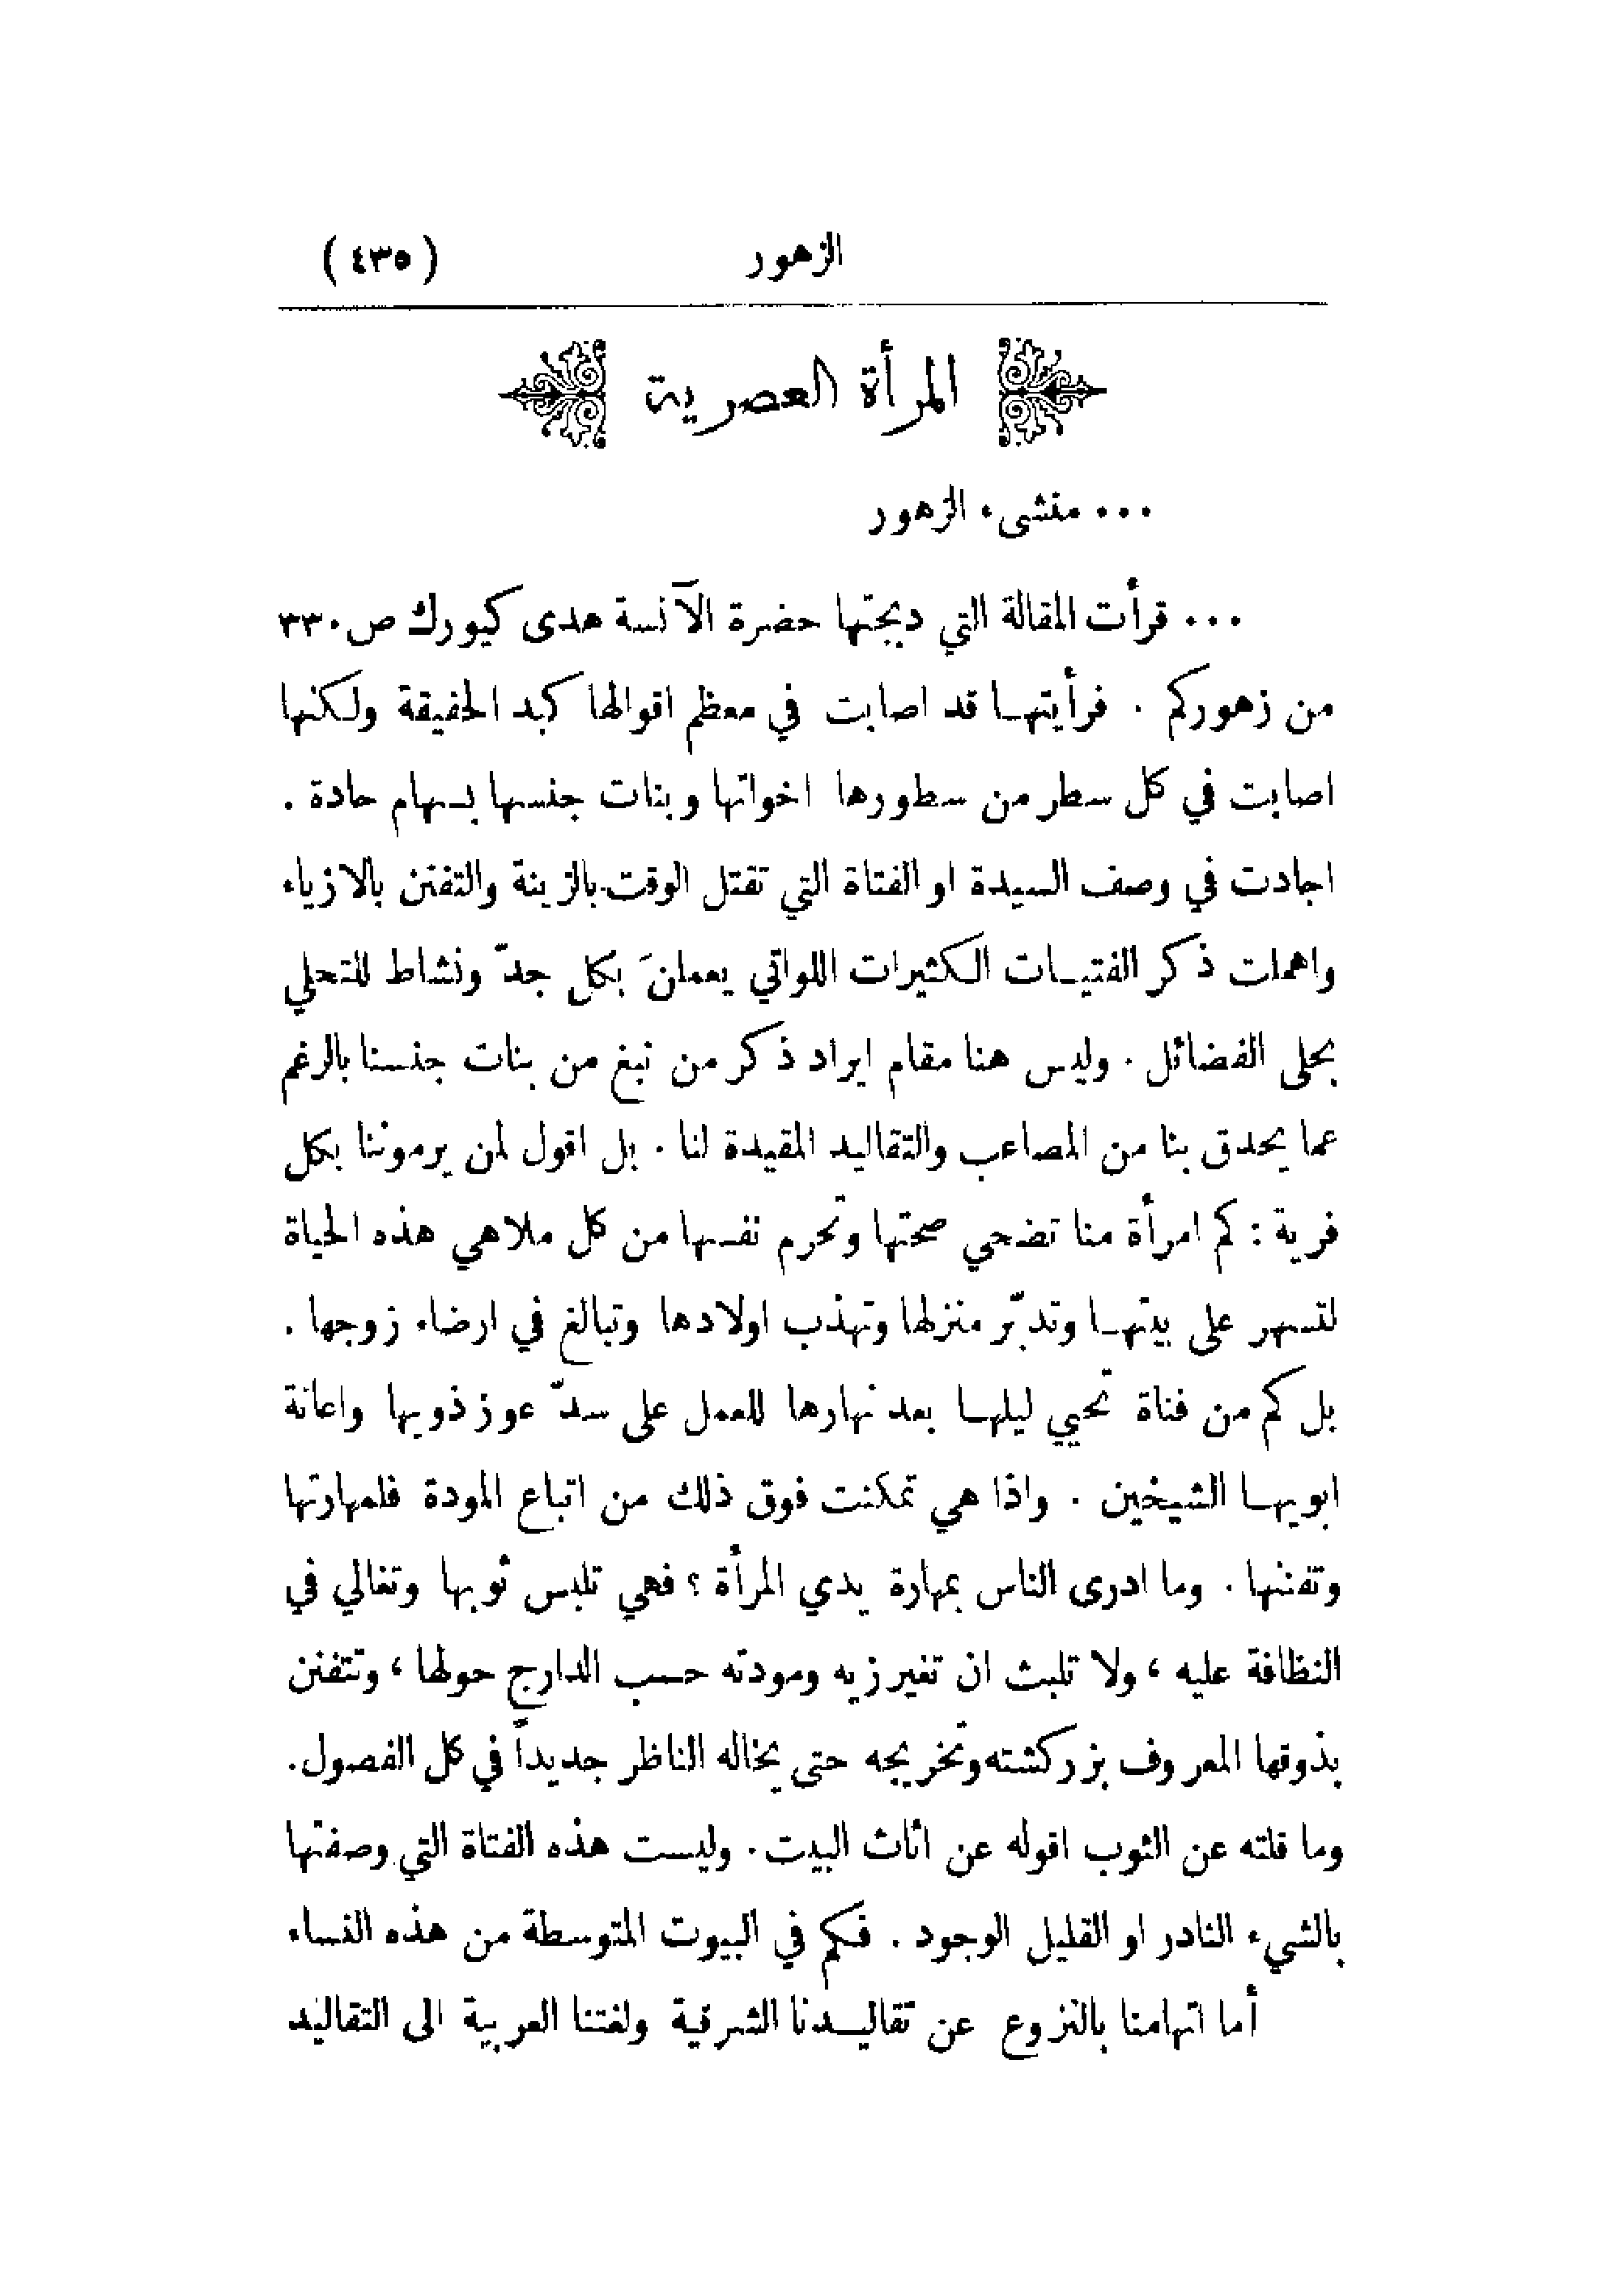 الزهور (٤٣٥)
المرأة العصرية
... منشىء الزهور
... قرأت المقالة التي دبجتها حضرة الآنسة هدى كيورك ص ٣٣٠
من زهوركم . فرأيتها قد اصابت في معظم اقوالها كبد الحقيقة ولكنها
اصابت في كل سطر من سطورها اخواتها وبنات جنسها بسهام حادة .
اجادت في وصف السيدة او الفتاة التي تقتل الوقت بالزينة والتفنن بالازياء
واهملت ذكر الفتيات الكثيرات اللواتي يعملنَ بكل جدّ ونشاط للتحلي
بحلى الفضائل . وليس هنا مقام ايراد ذكر من نبغ من بنات جنسنا بالرغم
عما يحدق بنا من المصاعب والتقاليد المقيدة لنا . بل اقول لمن يرموننا بكل
فرية : كم امرأة منا تضحي صحتها وتحرم نفسها من كل ملاهي هذه الحياة
لتسهر على بيتها وتدبّر منزلها وتهذب اولادها وتبالغ في ارضاء زوجها .
بل كم من فتاة تحيي ليلها بعد نهارها للعمل على سدّ عوز ذويها واعانة
ابويها الشيخين . واذا هي تمكنت فوق ذلك من اتباع المودة فلمهارتها
وتفننها . وما ادرى الناس بمهارة يدي المرأة ؟ فهي تلبس ثوبها وتغالي في
النظافة عليه ، ولا تلبث ان تغير زيه ومودته حسب الدارج حولها ، وتتفنن
بذوقها المعروف بزركشته وتخريجه حتى يخاله الناظر جديداً في كل الفصول.
وما قلته عن الثوب اقوله عن اثاث البيت . وليست هذه الفتاة التي وصفتها
بالشيء النادر او القليل الوجود . فكم في البيوت المتوسطة من هذه النساء
أما اتهامنا بالنزوع عن تقاليدنا الشرقية ولغتنا العربية الى التقاليد